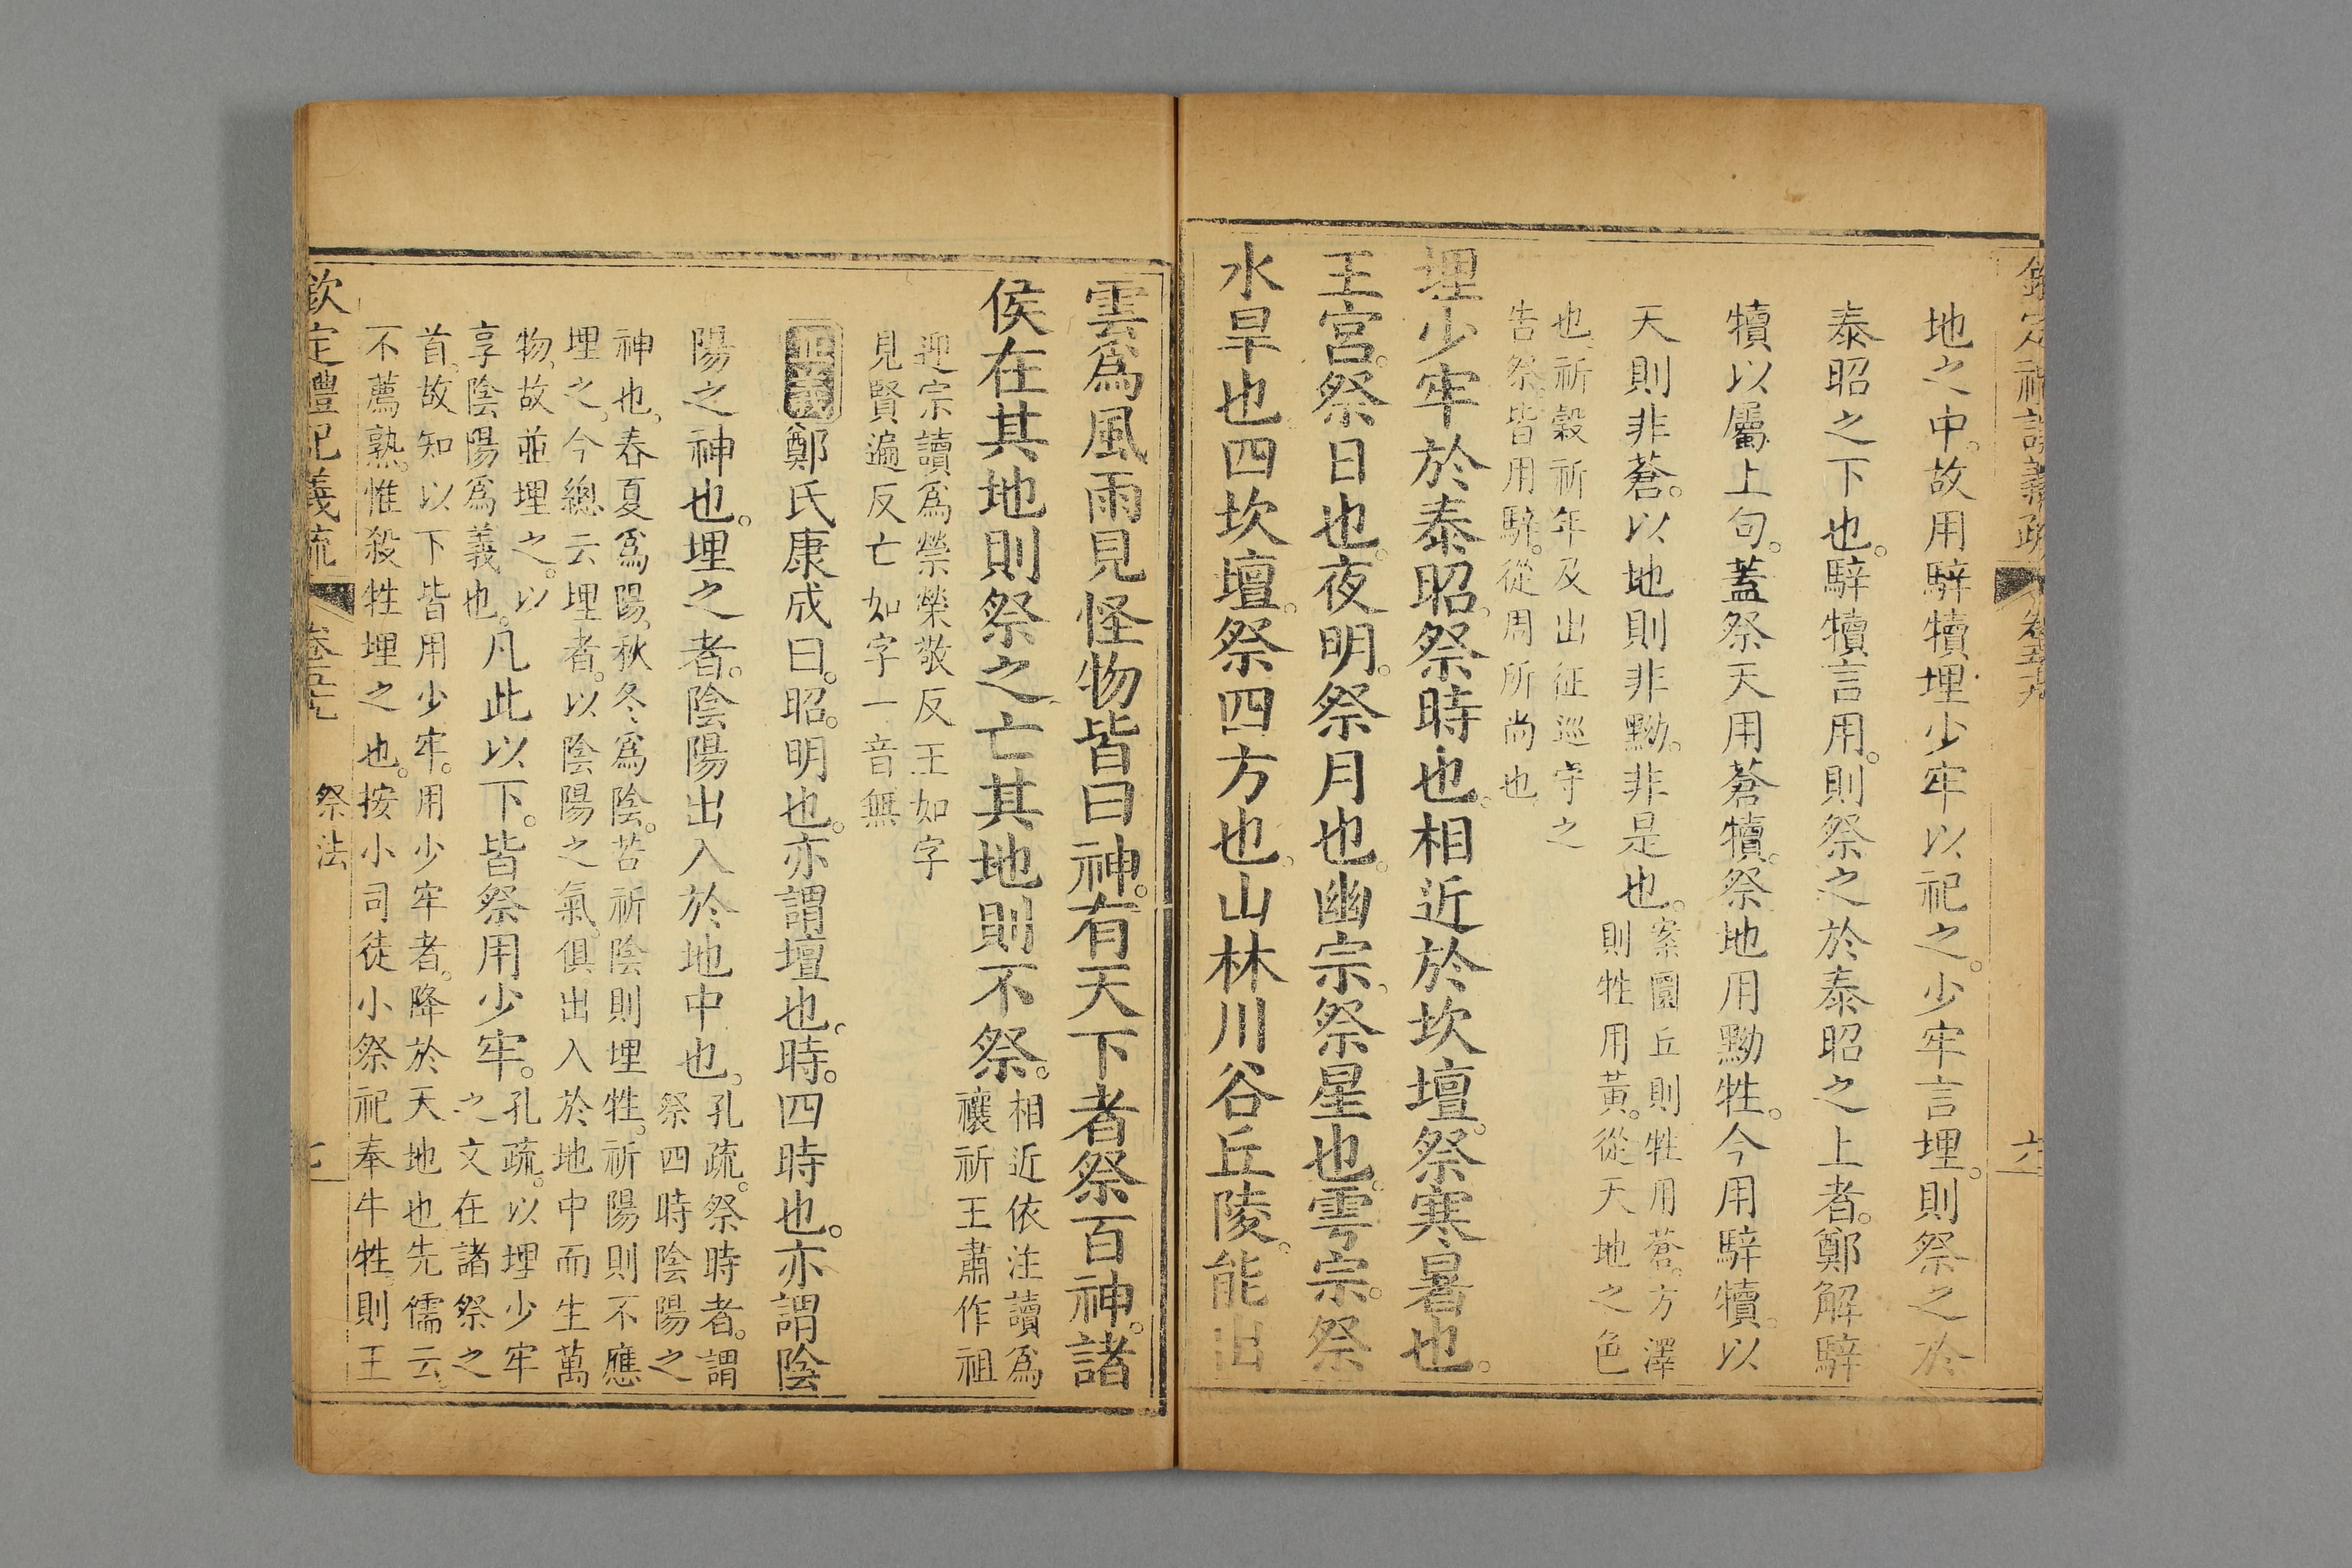 欽定禮記義疏 卷五十九 六
地之中。故用騂犢埋少牢以祀之。少牢言埋。則祭之於
泰昭之下也。騂犢言用。則祭之於泰昭之上者。鄭解騂
犢以屬上句。蓋祭天用蒼犢。祭地用黝牲。今用騂犢。以
天則非蒼。以地則非黝。非是也。
案圜丘則牲用蒼。方澤
則牲用黃。從天地之色
也。祈穀祈年及出征巡守之
告祭。皆用騂。從周所尚也。
埋少牢於泰昭。祭時也。相近於坎壇。祭寒暑也。
王宮。祭日也。夜明。祭月也。幽宗。祭星也。雩宗。祭
水旱也。四坎壇。祭四方也。山林川谷丘陵。能出
雲為風雨見怪物皆曰神。有天下者祭百神。諸
侯在其地則祭之亡其地則不祭。
相近依注讀為
禳祈王肅作祖
迎宗讀為禜榮敬反王如字
見賢遍反亡如字一音無
正義鄭氏康成曰。昭。明也。亦謂壇也。時。四時也。亦謂陰
陽之神也。埋之者。陰陽出入於地中也。
孔疏。祭時者。謂
祭四時陰陽之
神也。春夏為陽。秋冬為陰。若祈陰則埋牲。祈陽則不應
埋之。今總云埋者。以陰陽之氣。俱出入於地中而生萬
物。故並埋之。以
享陰陽為義也。
凡此以下。皆祭用少牢。
孔疏。以埋少牢
之文在諸祭之
首。故知以下皆用少牢。用少牢者。降於天地也先儒云。
不薦熟。惟殺牲埋之也。按小司徒小祭祀奉牛牲。則王
欽定禮記義疏 卷五十九 祭法 七